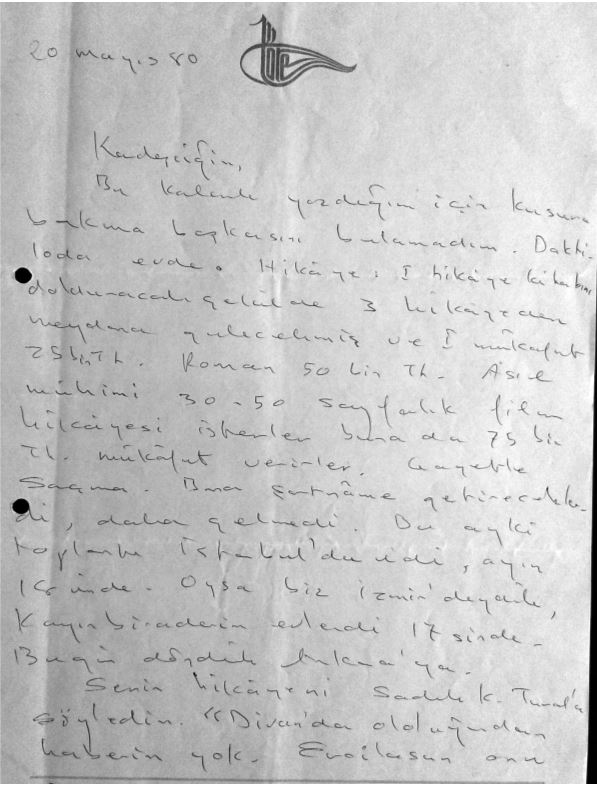 20 mayıs 80
Kardeşiğim,
Bu kalemle yazdığım için kusura
bakma başkasını bulamadım. Dakti-
loda evde. Hikâye: I hikâye kitabını
dolduracak şekilde 3 hikâyeden
meydana gelecekmiş ve I mükâfat
25 bin TL. Roman 50 bin TL. Asıl
mühimi 30-50 sayfalık film
hikâyesi isterler buna da 75 bin
TL. mükâfat verirler. Gayetle
Saçma. Bana şartnâme getirecekler-
di, daha gelmedi. Bu ayki
toplantı İstanbul'da idi, ayın
inde. Oysa biz İzmir'deydik,
Kayınbiraderin evlendi 17 sinde.
Bugün döndük Ankara'ya.
Senin hikâyeni Sadık K. Tural'a
söyledim. "Divan'da olduğundan
haberim yok. Ercilasun onu